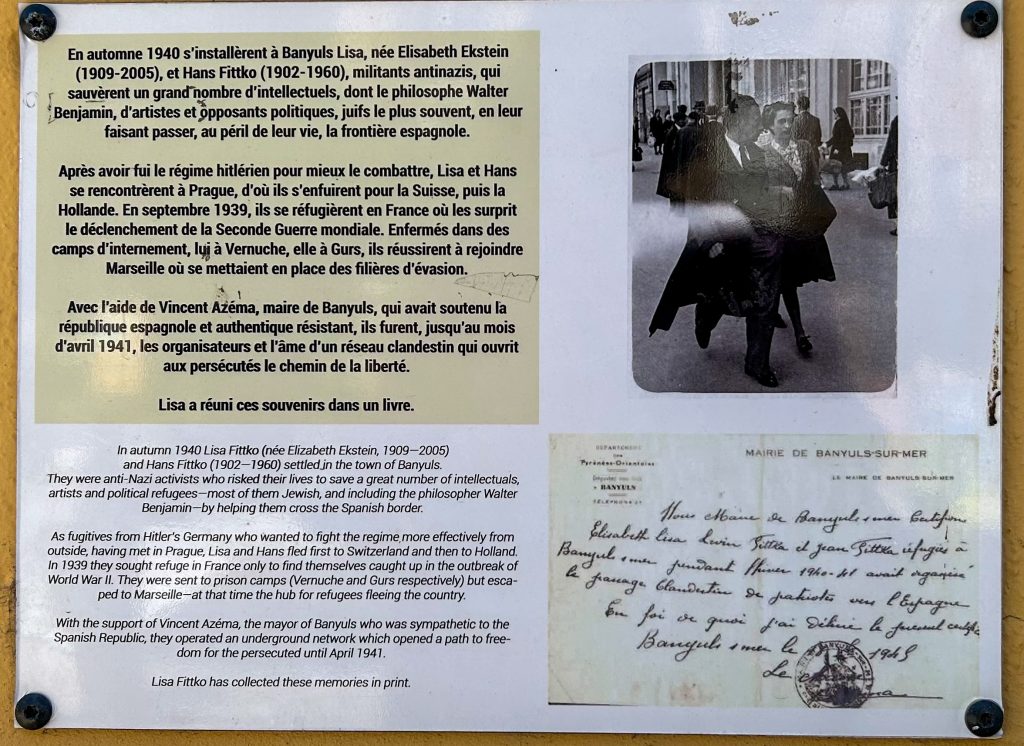 En automne 1940 s'installèrent à Banyuls Lisa, née Elisabeth Ekstein
(1909-2005), et Hans Fittko (1902-1960), militants antinazis, qui
sauvèrent un grand nombre d'intellectuels, dont le philosophe Walter
Benjamin, d'artistes et opposants politiques, juifs le plus souvent, en leur
faisant passer, au péril de leur vie, la frontière espagnole.
Après avoir fui le régime hitlérien pour mieux le combattre, Lisa et Hans
se rencontrèrent à Prague, d'où ils s'enfuirent pour la Suisse, puis la
Hollande. En septembre 1939, ils se réfugièrent en France où les surprit
le déclenchement de la Seconde Guerre mondiale. Enfermés dans des
camps d'internement, lui à Vernuche, elle à Gurs, ils réussirent à rejoindre
Marseille où se mettaient en place des filières d'évasion.
Avec l'aide de Vincent Azéma, maire de Banyuls, qui avait soutenu la
république espagnole et authentique résistant, ils furent, jusqu'au mois
d'avril 1941, les organisateurs et l'âme d'un réseau clandestin qui ouvrit
aux persécutés le chemin de la liberté.
Lisa a réuni ces souvenirs dans un livre.
In autumn 1940 Lisa Fittko (née Elizabeth Ekstein, 1909—2005)
and Hans Fittko (1902—1960) settled in the town of Banyuls.
They were anti-Nazi activists who risked their lives to save a great number of intellectuals,
artists and political refugees—most of them Jewish, and including the philosopher Walter
Benjamin—by helping them cross the Spanish border.
As fugitives from Hitler's Germany who wanted to fight the regime more effectively from
outside, having met in Prague, Lisa and Hans fled first to Switzerland and then to Holland.
In 1939 they sought refuge in France only to find themselves caught up in the outbreak of
World War II. They were sent to prison camps (Vernuche and Gurs respectively) but esca-
ped to Marseille—at that time the hub for refugees fleeing the country.
With the support of Vincent Azéma, the mayor of Banyuls who was sympathetic to the
Spanish Republic, they operated an underground network which opened a path to free-
dom for the persecuted until April 1941.
Lisa Fittko has collected these memories in print.
DEPARTEMENT
DES
Pyrénées-Orientales
BANYULS
TÉLÉPHONE
MAIRIE DE BANYULS-SUR-MER
LE MAIRE DE BANYULS-SUR-MER
Nous Maire de Banyuls s mer Certifions
Elisabeth Lisa Fittko et Jean Fittko réfugiés à
Banyuls s mer pendant l'hiver 1940-41 avait organisé
le passage Clandestin de patriotes vers l'Espagne
En foi de quoi j'ai délivré le présent certific
Banyuls s mer le 1945
Le